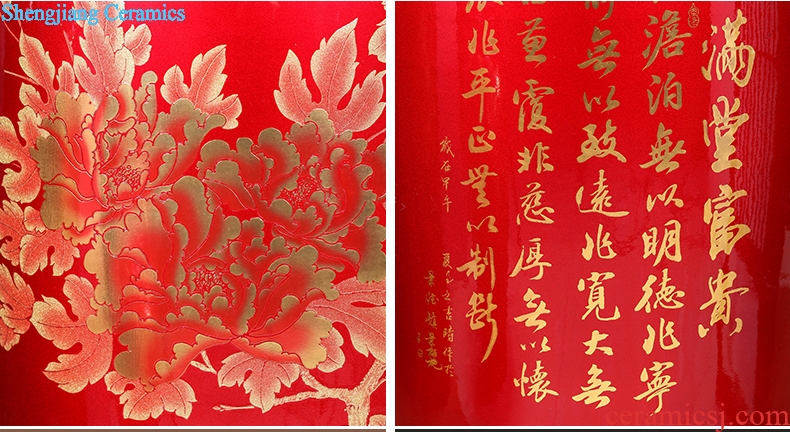 Shengjiang Ceramics
滿堂富貴
澹泊無以明德非寧
無以致遠非寬大無
覆非慈厚無以懷
非平正無以制斷
歲在甲午
ceramicsj.com